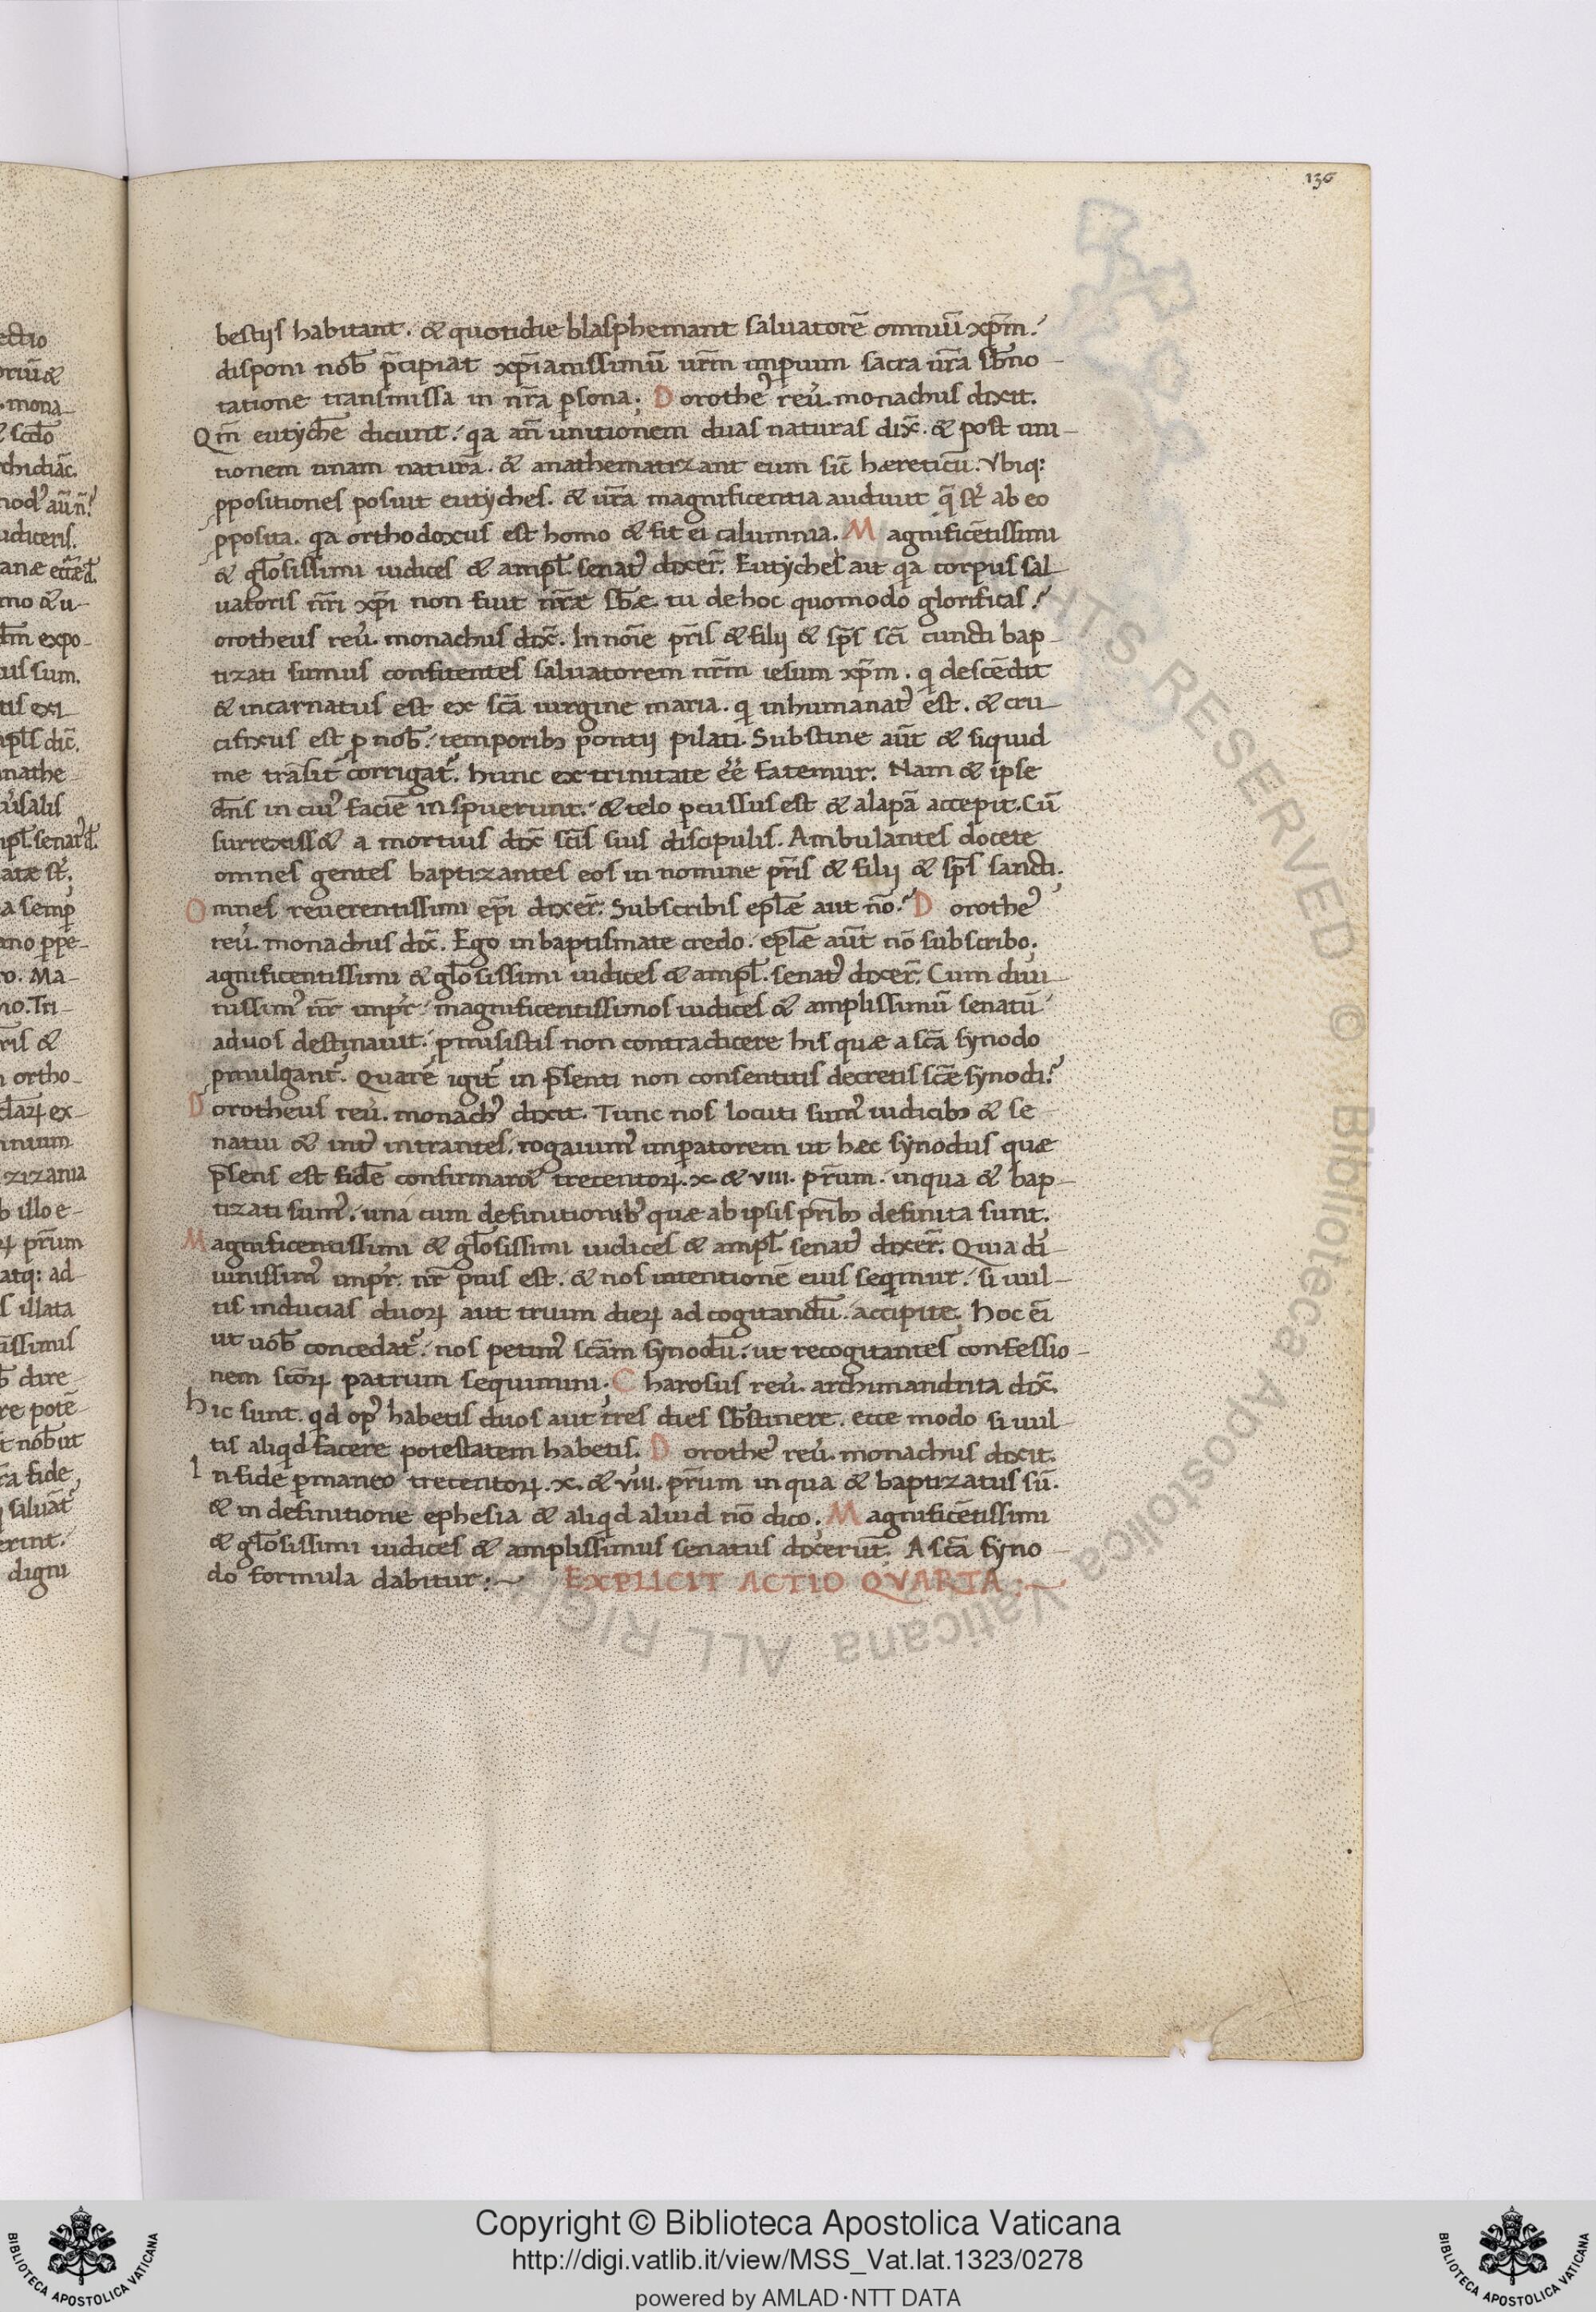 136
bestijs habitant. & quotidie blasphemant saluatorē omniū xp̄m.
disponi nob̄ p̄cipiat xp̄ianissimū ur̄m imperium sacra ur̄a sb̄no-
tatione transmissa in nr̄a psona. Dorothe᾽ reu̓. monachus dixit.
Qm̄ eutychē dicunt. qa an̄ unitionem duas naturas dix̄. & post uni-
tionem unam naturā. & anathematizant eum sic̄ hæreticū. Vbiq:
ppositiones posuit eutyches. & ur̄a magnificentia audiuit q̄ st̄ ab eo
pposita. qa orthodoxus est homo & fit ei calumnia. Magnificētissimi
& gl̄osissimi iudices & ampl̄. senat᾽ dixer̄. Eutyches ait qa corpus sal-
uatoris nr̄i xp̄i non fuit nr̄æ sb̄æ. tu de hoc quomodo glorificas?
orotheus reu̓. monachus dix̄. In noīe pr̄is & filij & sp̄s sc̄i cuncti bap-
tizati sumus confitentes saluatorem nr̄m iesum xp̄m. q descēdit
& incarnatus est ex sc̄a uirgine maria. qi inhumanat᾽ est. & cru-
cifixus est p nob̄. temporibꝫ pontij pilati. Substine aut̄ & siquid
me trāsit᾽ corrigat᾽. hunc ex trinitate ēē fatemur. Nam & ipse
dn̄s in cui᾽ faciē inspuerunt. & telo pcussus est & alapā accepit. Cū
surrexiss& a mortuis dix̄ sc̄is suis discipulis. Ambulantes docete
omnes gentes baptizantes eos in nomine pr̄is & filij & sp̄s sancti.
Omnes reuerentissimi ep̄i dixer̄. Subscribis epl̄æ aut nō? Dorothe᾽
reu̓. monachus dix̄. Ego in baptismate credo. epl̄æ aut̄ nō subscribo.
agnificentissimi & gl̄osissimi iudices & ampl̄. senat᾽ dixer̄. Cum diui-
nissim᾽ nr̄ impr̄. magnificentissimos iudices & amplissimū senatū
ad uos destinauit. pmisistis non contradicere his quæ a sc̄a synodo
pmulgant᾽. Quare igit᾽ in p̄senti non consentitis decretis sc̄æ synodi?
Dorotheus reu̓. monach᾽ dixit. Tunc nos locuti sum᾽ iudicibꝫ & se-
natui & int᾽ intrantes. rogauim᾽ impatorem ut hæc synodus quæ
p̄sens est fidē confirmar& trecentoꝝ. x. & viii. pr̄um. in qua & bap-
tizati sum᾽. una cum definitionib᾽ quæ ab ipsis pr̄ibꝫ definita sunt.
Magnificentissimi & gl̄osissimi iudices & ampl̄. senat᾽ dixer̄. Quia di-
uinissim᾽ impr̄. nr̄ pius est. & nos intentionē eius seqimur. si uul-
tis inducias duoꝝ aut trium dieꝝ ad cogitandū. accipite. hoc &i
ut uob̄ concedat᾽. nos petim᾽ sc̄am synodū. ut recogitantes confessio-
nem sc̄oꝝ patrum sequimini. Charosus reu̓. archimandrita dix̄.
hic sunt. qd op᾽ habetis duos aut tres dies sb̄stinere. ecce modo si uul-
tis aliqd facere potestatem habetis. Dorothe᾽ reu̓. monachus dixit.
In fide pmaneo trecentoꝝ. x. & viii. pr̄um in qua & baptizatus sū.
& in definitione ephesia & aliqd aliud nō dico. Magnificētissimi
& gl̄osissimi iudices & amplissimus senatus dixerūt. A sc̄a syno-
do formula dabitur:~ EXPLICIT ACTIO QVARTA:~
ALL RIGHTS RESERVED © Biblioteca Apostolica Vaticana
Copyright © Biblioteca Apostolica Vaticana
http://digi.vatlib.it/view/MSS_Vat.lat.1323/0278
powered by AMLAD·NTT DATA
BIBLIOTECA APOSTOLICA VATICANA
BIBLIOTECA APOSTOLICA VATICANA